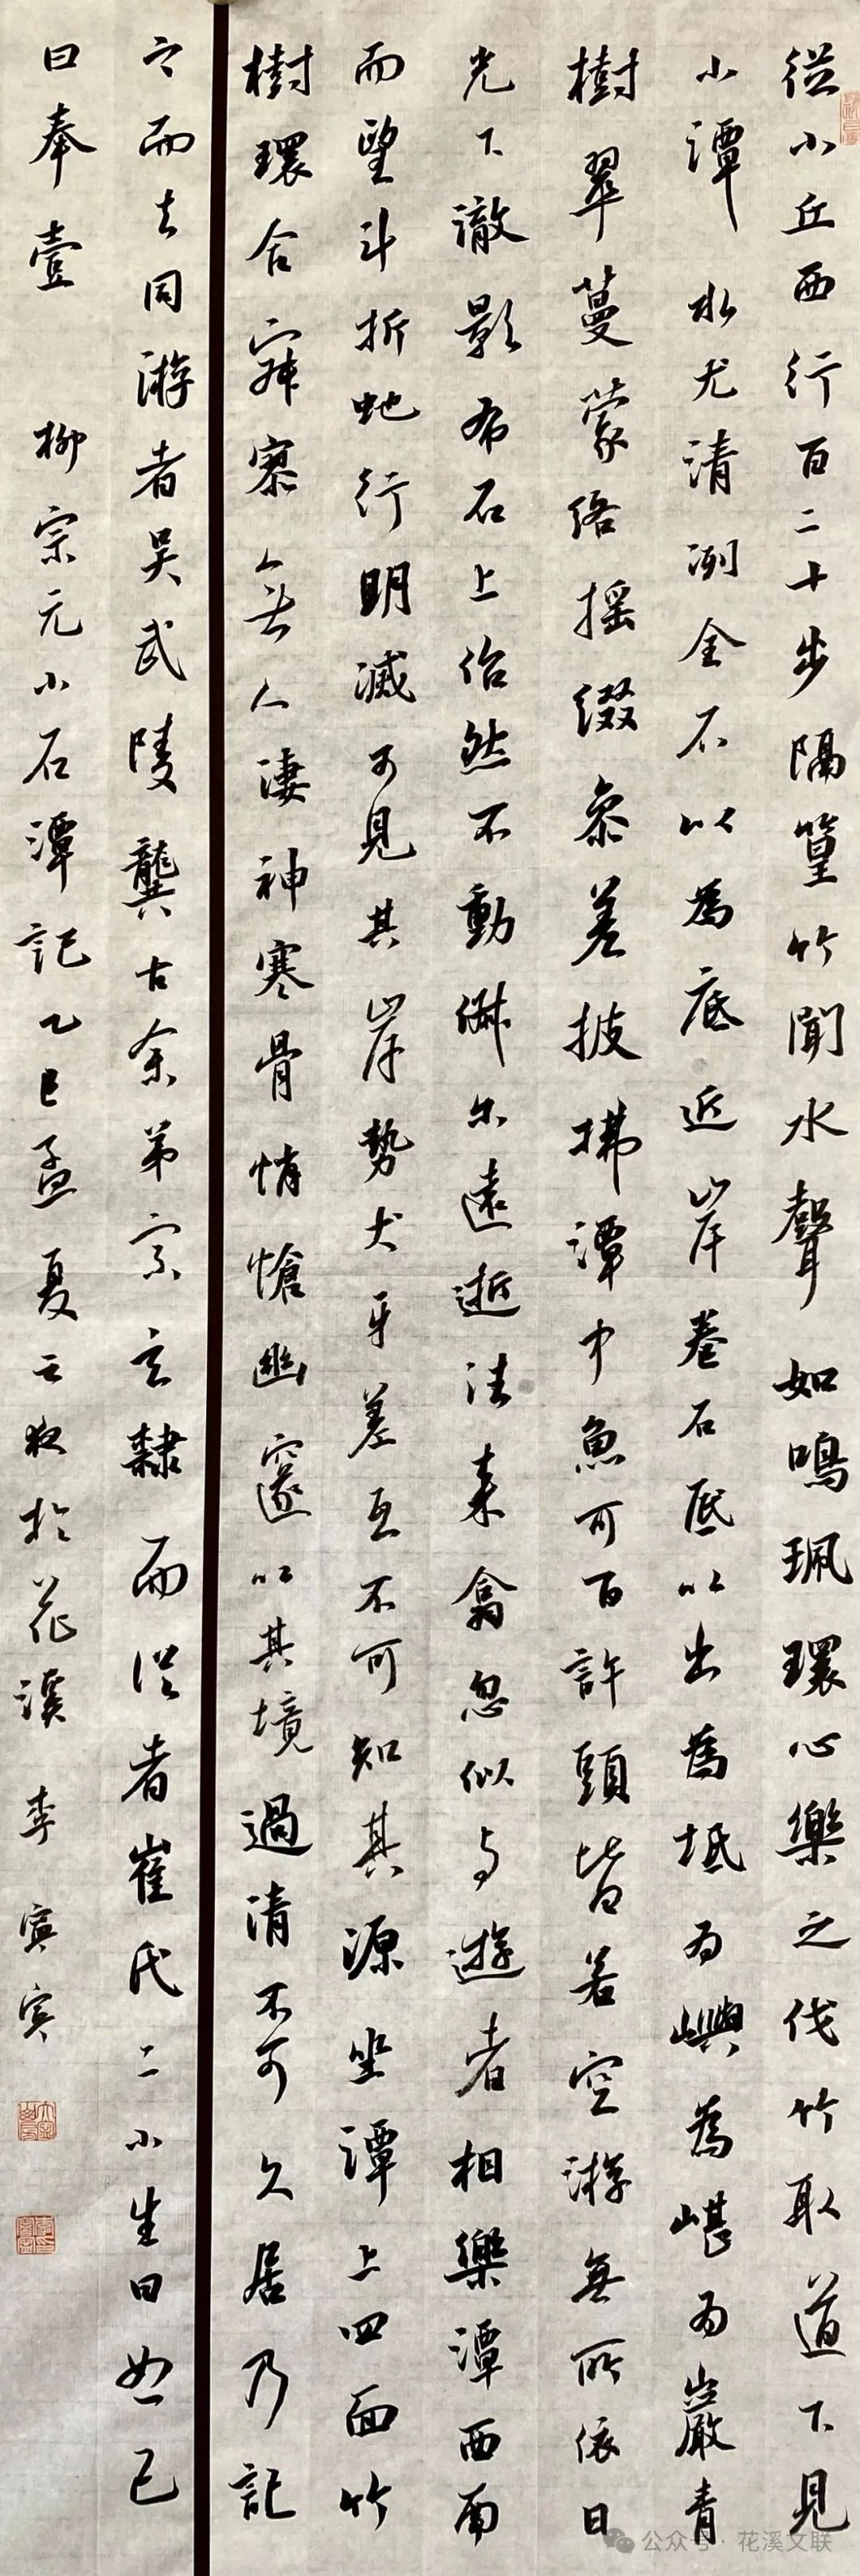 從小丘西行百二十步隔篁竹聞水聲如鳴珮環心樂之伐竹取道下見
小潭水尤清冽全石以為底近岸卷石底以出為坻為嶼為嵁為巖青
樹翠蔓蒙絡搖綴參差披拂潭中魚可百許頭皆若空游無所依日
光下澈影布石上佁然不動俶尔遠逝往來翕忽似与遊者相樂潭西南
而望斗折虵行明滅可見其岸勢犬牙差互不可知其源坐潭上四面竹
樹環合寂寥無人淒神寒骨悄愴幽邃以其境過清不可久居乃記
之而去同游者吳武陵龔古余弟宗玄隸而從者崔氏二小生曰恕己
曰奉壹 柳宗元小石潭記乙巳孟夏之夜於花溪 李寅寅
公众号·花溪文联